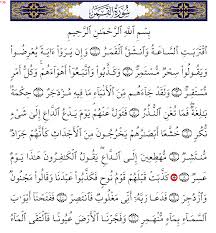 سُورَةُ القَمَرِ
بِسْمِ اللَّهِ الرَّحْمَٰنِ الرَّحِيمِ
اقْتَرَبَتِ السَّاعَةُ وَانْشَقَّ الْقَمَرُ ۝١ وَإِنْ يَرَوْا آيَةً يُعْرِضُوا
وَيَقُولُوا سِحْرٌ مُسْتَمِرٌّ ۝٢ وَكَذَّبُوا وَاتَّبَعُوا أَهْوَاءَهُمْ وَكُلُّ أَمْرٍ
مُسْتَقِرٌّ ۝٣ وَلَقَدْ جَاءَهُمْ مِنَ الْأَنْبَاءِ مَا فِيهِ مُزْدَجَرٌ ۝٤ حِكْمَةٌ
بَالِغَةٌ فَمَا تُغْنِ النُّذُرُ ۝٥ فَتَوَلَّ عَنْهُمْ يَوْمَ يَدْعُ الدَّاعِ إِلَىٰ شَيْءٍ
نُكُرٍ ۝٦ خُشَّعًا أَبْصَارُهُمْ يَخْرُجُونَ مِنَ الْأَجْدَاثِ كَأَنَّهُمْ جَرَادٌ
مُنْتَشِرٌ ۝٧ مُهْطِعِينَ إِلَى الدَّاعِ يَقُولُ الْكَافِرُونَ هَٰذَا يَوْمٌ
عَسِرٌ ۝٨ كَذَّبَتْ قَبْلَهُمْ قَوْمُ نُوحٍ فَكَذَّبُوا عَبْدَنَا وَقَالُوا مَجْنُونٌ
وَازْدُجِرَ ۝٩ فَدَعَا رَبَّهُ أَنِّي مَغْلُوبٌ فَانْتَصِرْ ۝١٠ فَفَتَحْنَا أَبْوَابَ
السَّمَاءِ بِمَاءٍ مُنْهَمِرٍ ۝١١ وَفَجَّرْنَا الْأَرْضَ عُيُونًا فَالْتَقَى الْمَاءُ